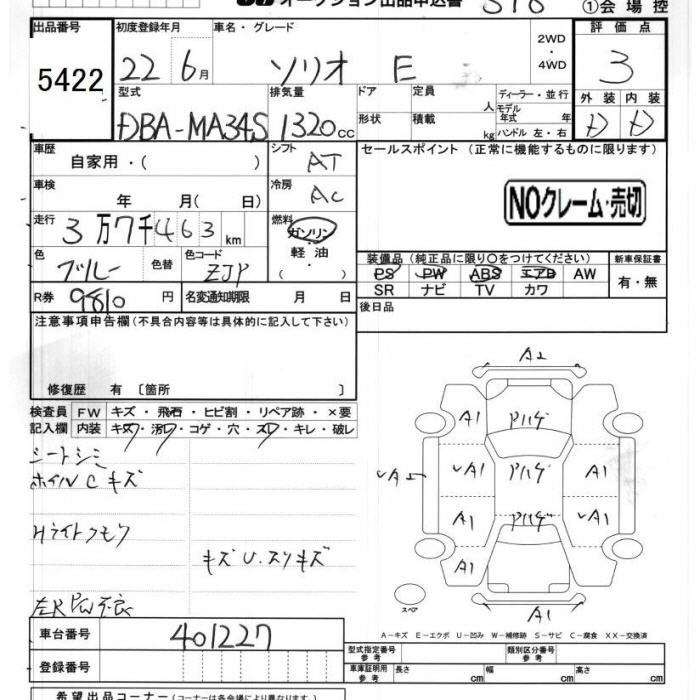 オークション出品申込書 518 ①会場控
出品番号 初度登録年月 車名・グレード 評価点
5422 22 6月 ソリオ E 2WD ・ 4WD 3
型式 排気量 ドア 定員 ディーラー・並行 外装 内装
DBA-MA34S 1320cc 形状 積載 人 kg モデル年式 年 ハンドル 左・右 D D
車歴 自家用・( ) シフト AT セールスポイント (正常に機能するものに限ります)
車検 年 月( 日) 冷房 AC
NOクレーム・売切
走行 3万7千463km 燃料 ガソリン・軽油・( )
色 ブルー 色替 色コード ZJP
装備品(純正品に限り○をつけてください) 新車保証書
PS PW ABS エアB AW 有・無
SR ナビ TV カワ
R券 9810円 名変通知期限 月 日 後日品
注意事項申告欄(不具合内容等は具体的に記入して下さい)
修復歴 有 [箇所 ]
検査員 FW キズ・飛石・ヒビ割・リペア跡・×要
記入欄 内装 キズ・汚レ・コゲ・穴・スレ・キレ・破レ
シートシミ
ホイルC キズ
Hライトクモリ
キズU.スリキズ
左R PW不良
A2
A1 アハゲ
A1 アハゲ A1
A1 アハゲ A1
A1
スペア A1
A-キズ E-エクボ U-凹み W-補修跡 S-サビ C-腐食 XX-交換済
車台番号 401227
型式指定番号 参考 類別区分番号 参考
登録番号 車庫証明用 参考 長さ cm 幅 cm 高さ cm
希望出品コーナー(コーナーは各会場により異なります)